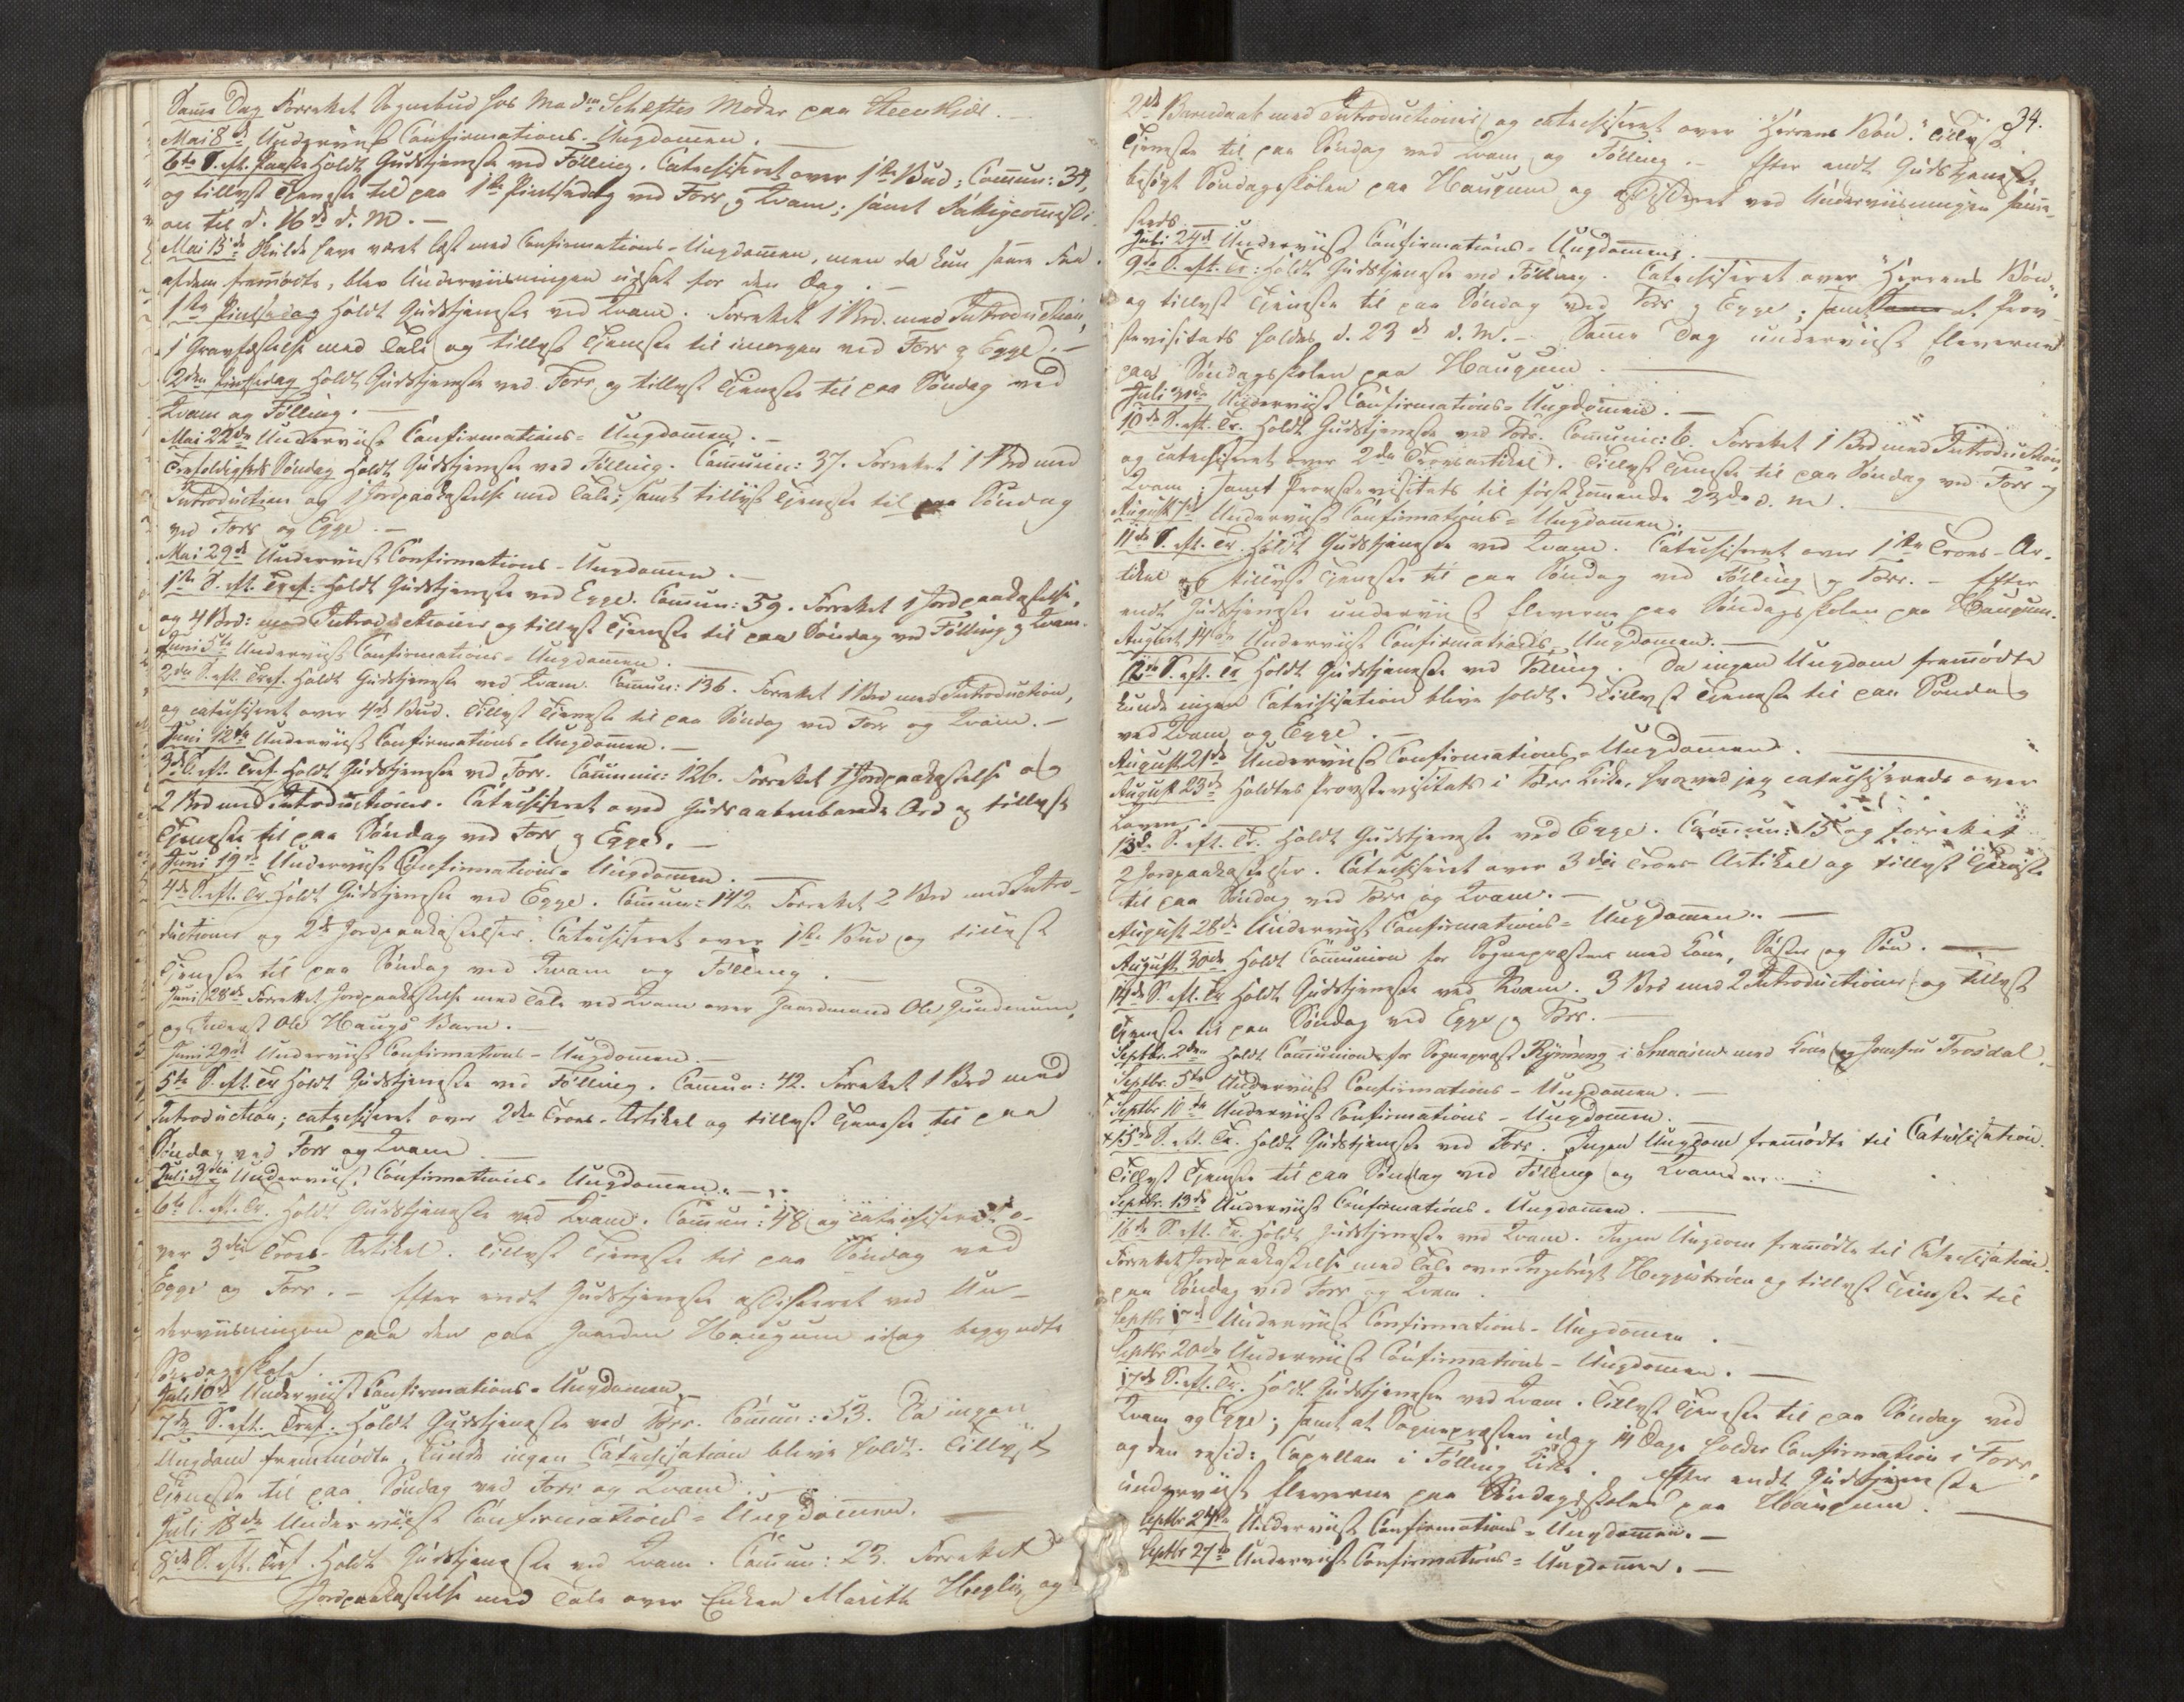 Samme Dag Forrettet Sognebud hos Madm Scheftes Moder paa Steenkjær. —
Mai 8de Underviist Confirmations-Ungdommen. —
6te S. eft. Paaske Holdt Gudstjeneste ved Følling. Catechiseret over 1ste Bud; Commun: 34,
og tillyst Tjeneste til paa 1ste Pintsedag ved Forr og Qvam; samt Fattigcommissi-
on til d. 16de d. M. —
Mai 15de Skulde have været læst med Confirmations-Ungdommen, men da kun faa
af dem fremmødte, blev Underviisningen udsat for den Dag. —
1ste Pintsedag Holdt Gudstjeneste ved Qvam. Forrettet 1 Brd. med Introduction,
1 Gravfæstelse med Tale og tillyst Tjeneste til imorgen ved Forr og Egge. —
2den Pintsedag Holdt Gudstjeneste ved Forr og tillyst Tjeneste til paa Søndag ved
Qvam og Følling. —
Mai 22de Underviist Confirmations-Ungdommen. —
Trefoldigheds Søndag Holdt Gudstjeneste ved Følling. Commun: 37. Forrettet 1 Brd med
Introduction og 1 Jordpaakastelse med Tale; samt tillyst Tjeneste til paa Søndag
ved Forr og Egge. —
Mai 29de Underviist Confirmations-Ungdommen. —
1ste S. eft. Tref: Holdt Gudstjeneste ved Egge. Commun: 59. Forrettet 1 Jordpaakastelse,
og 4 Brd: med Introductioner og tillyst Tjeneste til paa Søndag ved Følling og Qvam.
Juni 5te Underviist Confirmations-Ungdommen. —
2den S. eft. Tref. Holdt Gudstjeneste ved Qvam. Commun: 136. Forrettet 1 Brd med Introduction,
og catechiseret over 4de Bud. Tillyst Tjeneste til paa Søndag ved Forr og Qvam. —
Juni 12te Underviist Confirmations-Ungdommen. —
3de S. eft. Tref. Holdt Gudstjeneste ved Forr. Commun: 126. Forrettet 1 Jordpaakastelse og
2 Brd med Introductioner. Catechiseret over Guds aabenbarede Ord og tillyst
Tjeneste til paa Søndag ved Forr og Egge. —
Juni 19de Underviist Confirmations-Ungdommen. —
4de S. eft. Tr. Holdt Gudstjeneste ved Egge. Commun: 142. Forrettet 2 Brd med Intro-
ductioner og 2de Jordpaakastelser. Catechiseret over 1ste Bud og tillyst
Tjeneste til paa Søndag ved Qvam og Følling. —
Juni 28de Forrettet Jordpaakastelse med Tale ved Qvam over Gaardmand Ole Gundmum,
og Inderst Ole Haugs Barn. —
Juni 29de Underviist Confirmations-Ungdommen. —
5te S. eft. Tr Holdt Gudstjeneste ved Følling. Commun: 42. Forrettet 1 Brd med
Introduction; catechiseret over 2den Troes-Artikel og tillyst Tjeneste til paa
Søndag ved Forr og Qvam —
Juli 3die Underviist Confirmations-Ungdommen. —
6te S. eft. Tr. Holdt Gudstjeneste ved Qvam. Commun: 48 og catechiseret o-
ver 3die Troes-Artikel. Tillyst Tjeneste til paa Søndag ved
Egge og Forr. — Efter endt Gudstjeneste assisteret ved Un-
derviisningen paa den paa Gaarden Haugum idag begyndte
Søndagsskole.
Juli 10de Underviist Confirmations-Ungdommen —
7de S. eft. Tref. Holdt Gudstjeneste ved Forr. Commun: 53. Da ingen
Ungdom fremmødte, kunde ingen Catechisation blive holdt. Tillyst
Tjeneste til paa Søndag ved Forr og Qvam. —
Juli 18de Underviist Confirmations-Ungdommen. —
8de S. eft. Tref. Holdt Gudstjeneste ved Qvam. Commun: 23. Forrettet
Jordpaakastelse med Tale over Enken Marith Heglie, og
34.
2de Barnedaab med Introductioner og catechiseret over "Herrens Bøn." Tillyst
Tjeneste til paa Søndag ved Qvam og Følling. — Efter endt Gudstjeneste
besøgt Søndagsskolen paa Haugum og assisteret ved Underviisningen samme-
steds. —
Juli 24de Underviist Confirmations-Ungdommen. —
9de S. eft. Tr: Holdt Gudstjeneste ved Følling. Catechiseret over "Herrens Bøn",
og tillyst Tjeneste til paa Søndag ved Forr og Egge; samt at Prov-
stevisitats holdes d. 23de d. M. — Samme Dag underviist Eleverne
paa Søndagsskolen paa Haugum. —
Juli 31de Underviist Confirmations-Ungdommen. —
10de S. eft. Tr. Holdt Gudstjeneste ved Forr. Communic: 6. Forrettet 1 Brd med Introduction,
og catechiseret over 2den Troesartikel. Tillyst Tjeneste til paa Søndag ved Forr og
Qvam; samt Provstevisitats til førstkommende 23de d. M.
August 7de Underviist Confirmations-Ungdommen. —
11te S. eft. Tr. Holdt Gudstjeneste ved Qvam. Catechiseret over 1ste Troes-Ar-
tikel og tillyst Tjeneste til paa Søndag ved Følling og Forr. — Efter
endt Gudstjeneste underviist Eleverne paa Søndagsskolen paa Haugum.
August 14de Underviist Confirmations-Ungdommen. —
12te S. eft. Tr Holdt Gudstjeneste ved Følling. Da ingen Ungdom fremmødte
kunde ingen Catechisation blive holdt. Tillyst Tjeneste til paa Søndag
ved Qvam og Egge. —
August 21de Underviist Confirmations-Ungdommen. —
August 23de Holdtes Provstevisitats i Forr Kirke, hvorved jeg catechiserede over
Loven. —
13de S. eft. Tr. Holdt Gudstjeneste ved Egge. Commun: 15 og forrettet
2 Jordpaakastelser. Catechiseret over 3die Troes-Artikel og tillyst Tjeneste
til paa Søndag ved Forr og Qvam. —
August 28de Underviist Confirmations-Ungdommen. —
August 30de Holdt Communion for Sognepræsten med Kone, Søster og Søn. —
14de S. eft. Tr Holdt Gudstjeneste ved Qvam. 3 Brd med 2 Introductioner og tillyst
Tjeneste til paa Søndag ved Egge og Forr. —
Septbr. 2den Holdt Communion for Sognepræst Rynning i Snaasen med Kone og Jomfru Trosdal. —
Septbr. 5te Underviist Confirmations-Ungdommen. —
Septbr 10de Underviist Confirmations-Ungdommen. —
15de S. eft. Tr. Holdt Gudstjeneste ved Forr. Ingen Ungdom fremmødte til Catechisation.
Tillyst Tjeneste til paa Søndag ved Følling og Qvam. —
Septbr. 13de Underviist Confirmations-Ungdommen. —
16de S. eft. Tr. Holdt Gudstjeneste ved Qvam. Ingen Ungdom fremmødte til Catechisation.
Forrettet Jordpaakastelse med Tale over Ingebrigt og tillyst Tjeneste til
paa Søndag ved Forr og Qvam.
Septbr Underviist Confirmations-Ungdommen. —
Septbr 20de Underviist Confirmations-Ungdommen. —
17de S. eft. Tr. Holdt Gudstjeneste ved Qvam. Tillyst Tjeneste til paa Søndag ved
Qvam og Egge; samt at Sognepræsten idag 14 Dage holder Confirmation i Forr,
og den resid: Capellan i Følling Kirke. Efter endt Gudstjeneste
underviist Eleverne paa Søndagsskolen paa Haugum. —
Septbr 24de Underviist Confirmations-Ungdommen. —
Septbr 27de Underviist Confirmations-Ungdommen. —